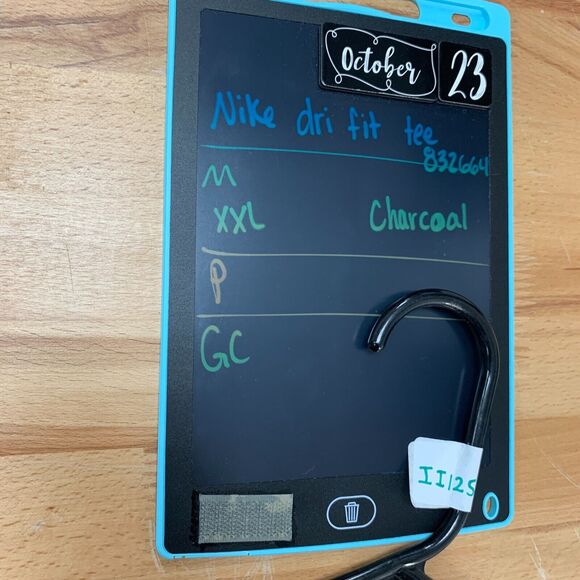 October 23
Nike dri fit tee
832664
M
XXL Charcoal
P
GC
II125